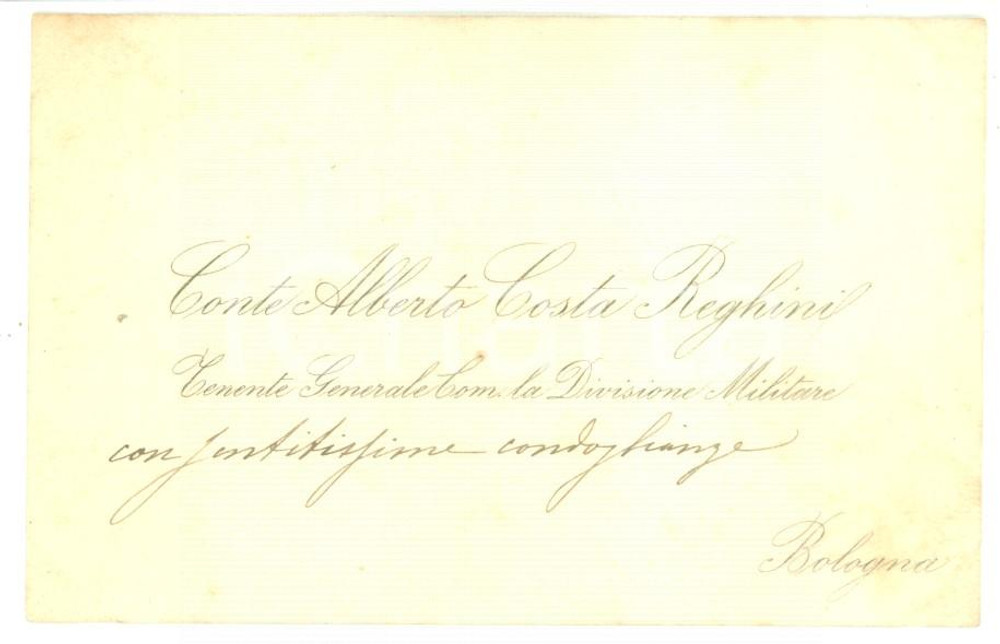 Conte Alberto Costa Reghini
Tenente Generale Com. la Divisione Militare
con sentitissime condoglianze
Bologna